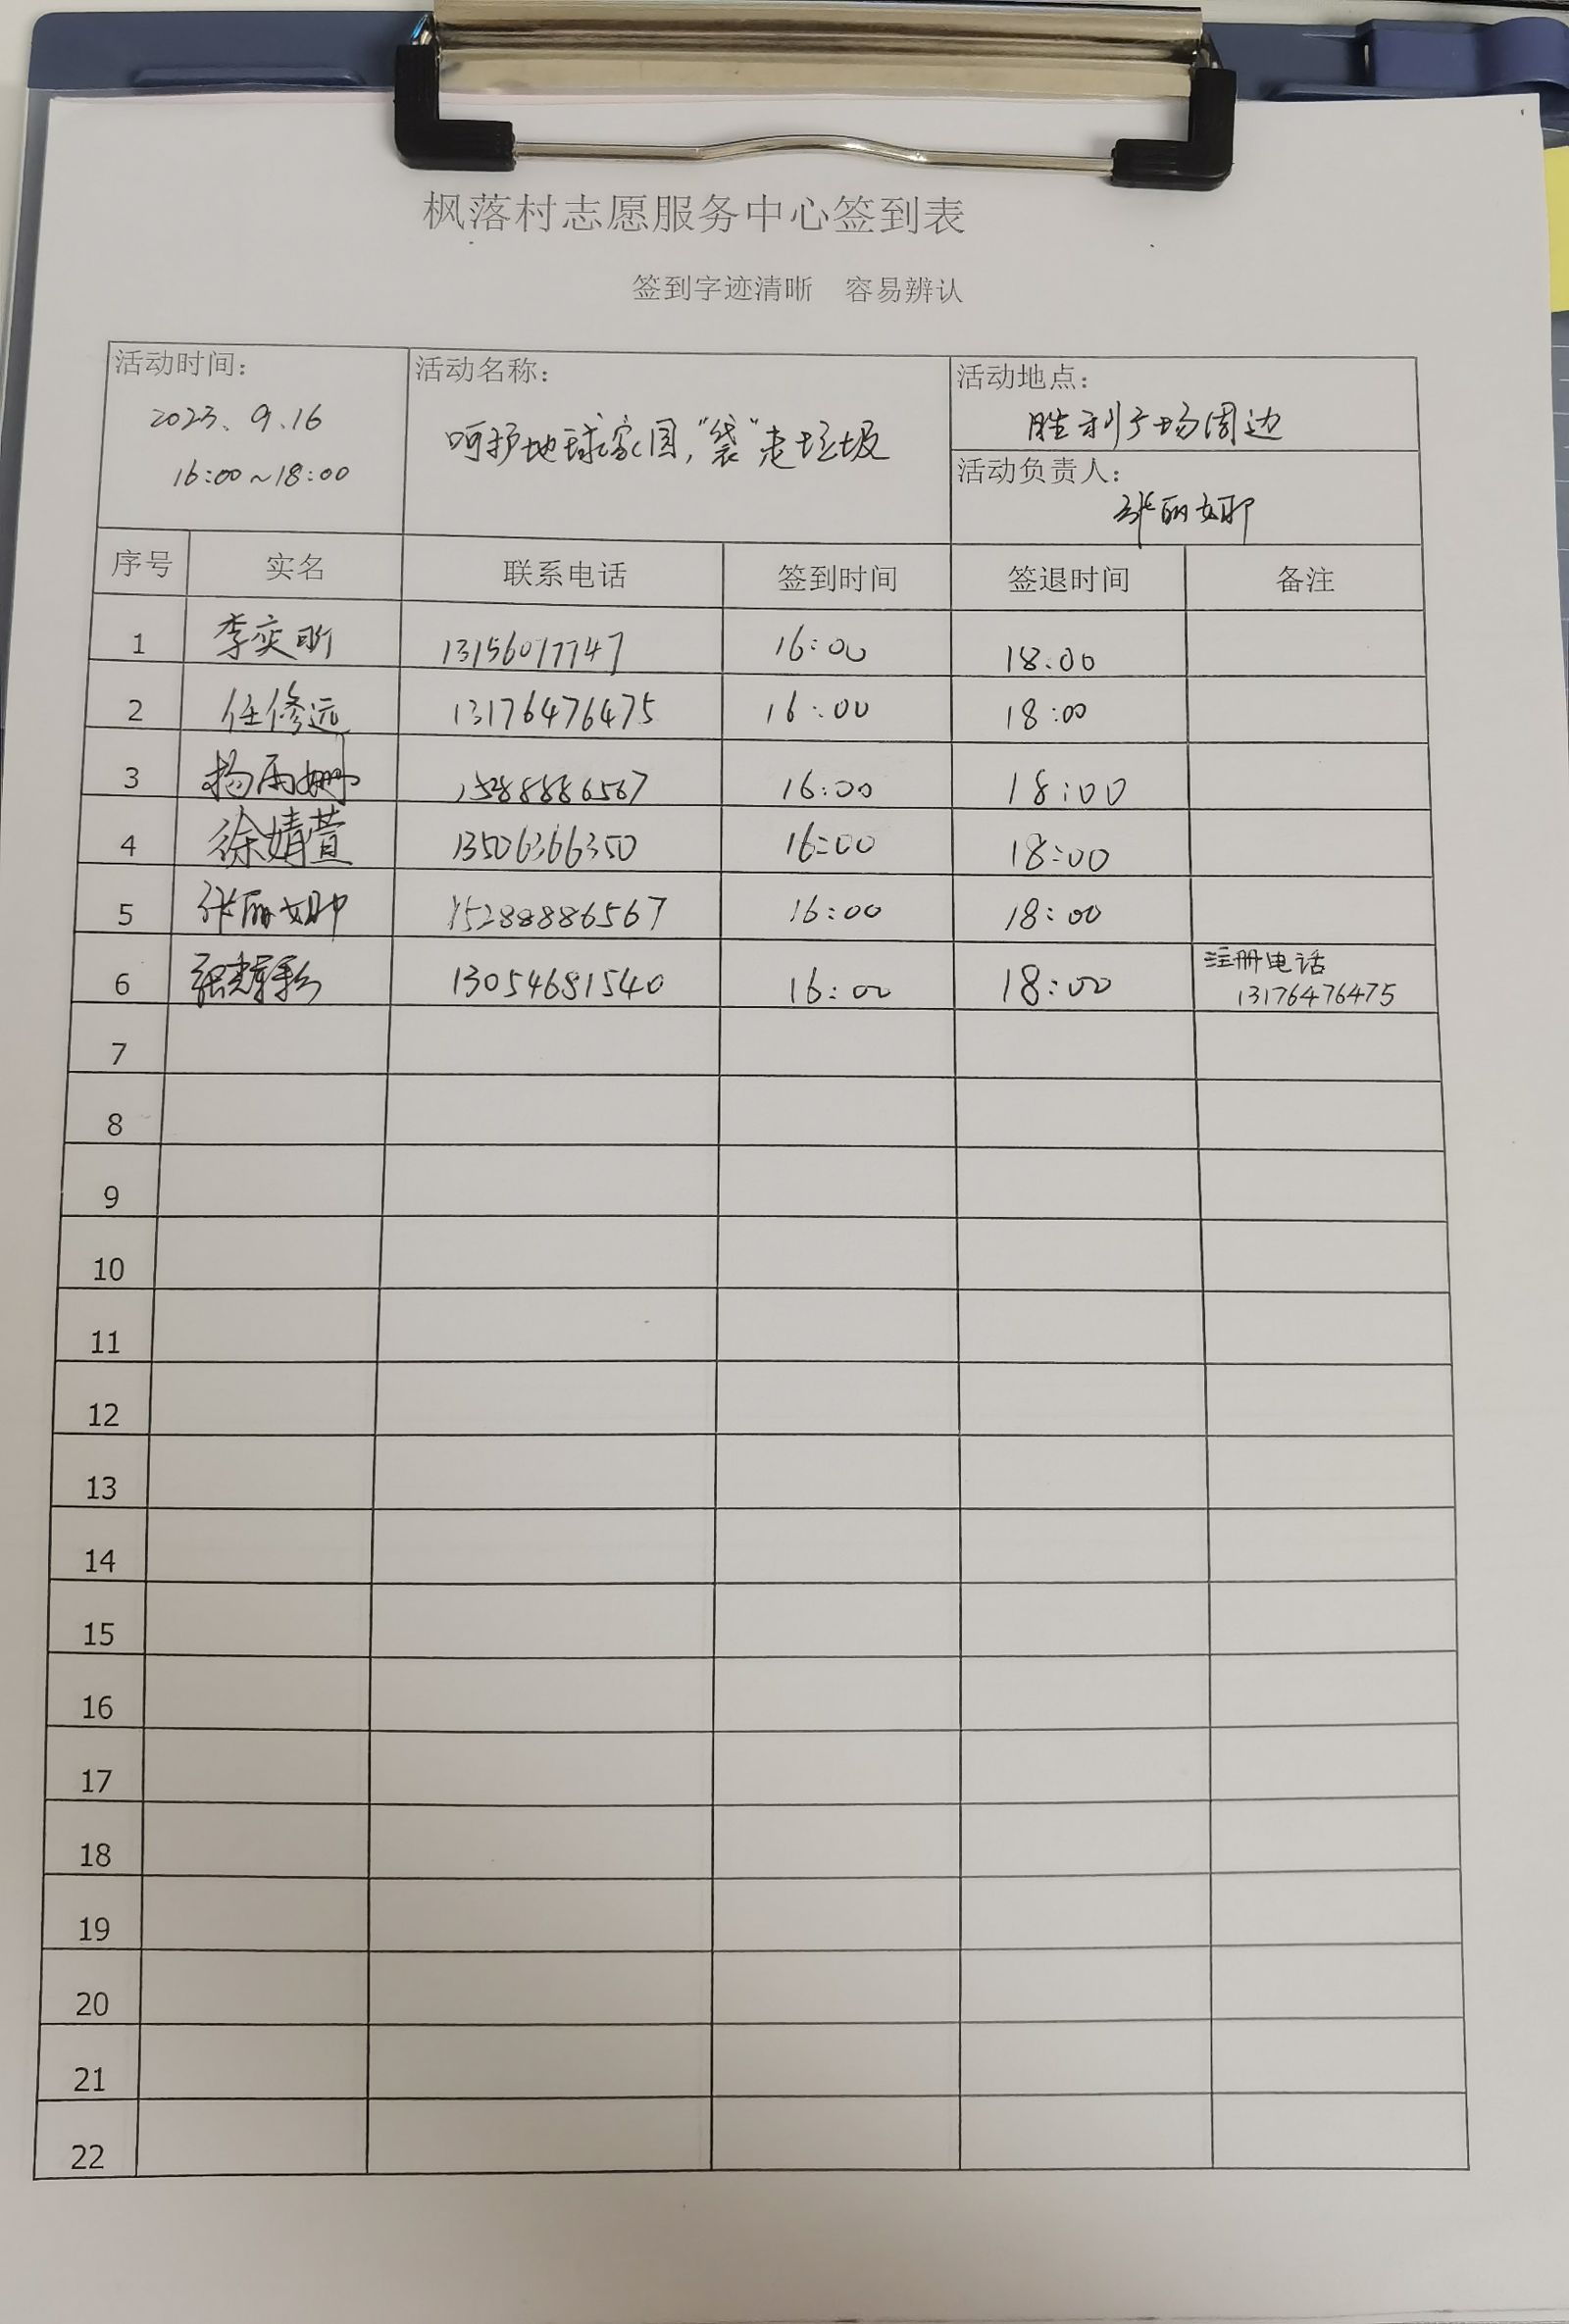 枫落村志愿服务中心签到表
签到字迹清晰 容易辨认
活动时间: 活动名称: 活动地点:
2023、9、16
16:00~18:00
呵护地球家园,"袋"走垃圾
胜利广场周边
活动负责人:
张丽娜
序号 实名 联系电话 签到时间 签退时间 备注
1 李奕昕 13156017747 16:00 18:00
2 任修远 13176476475 16:00 18:00
3 杨雨姗 15288886567 16:00 18:00
4 徐婧萱 13506366350 16:00 18:00
5 张丽娜 15288886567 16:00 18:00
6 13054681540 16:00 18:00 注册电话
13176476475
7
8
9
10
11
12
13
14
15
16
17
18
19
20
21
22